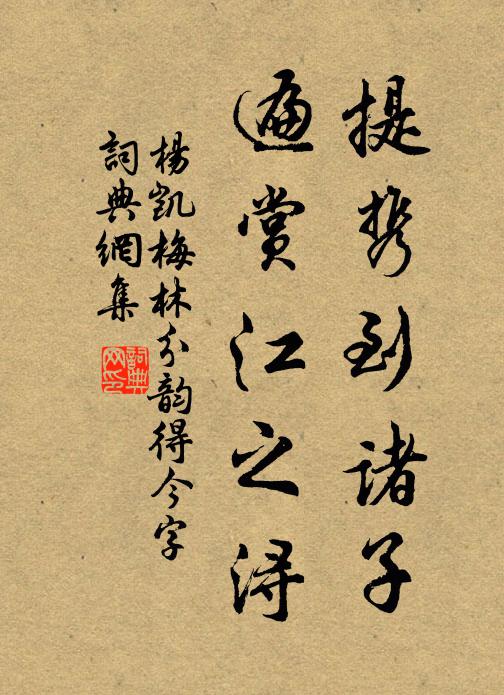 提携到诸子
遍賞江之浔
楊凱梅林分韵得今字
詞典網集
詞典网印